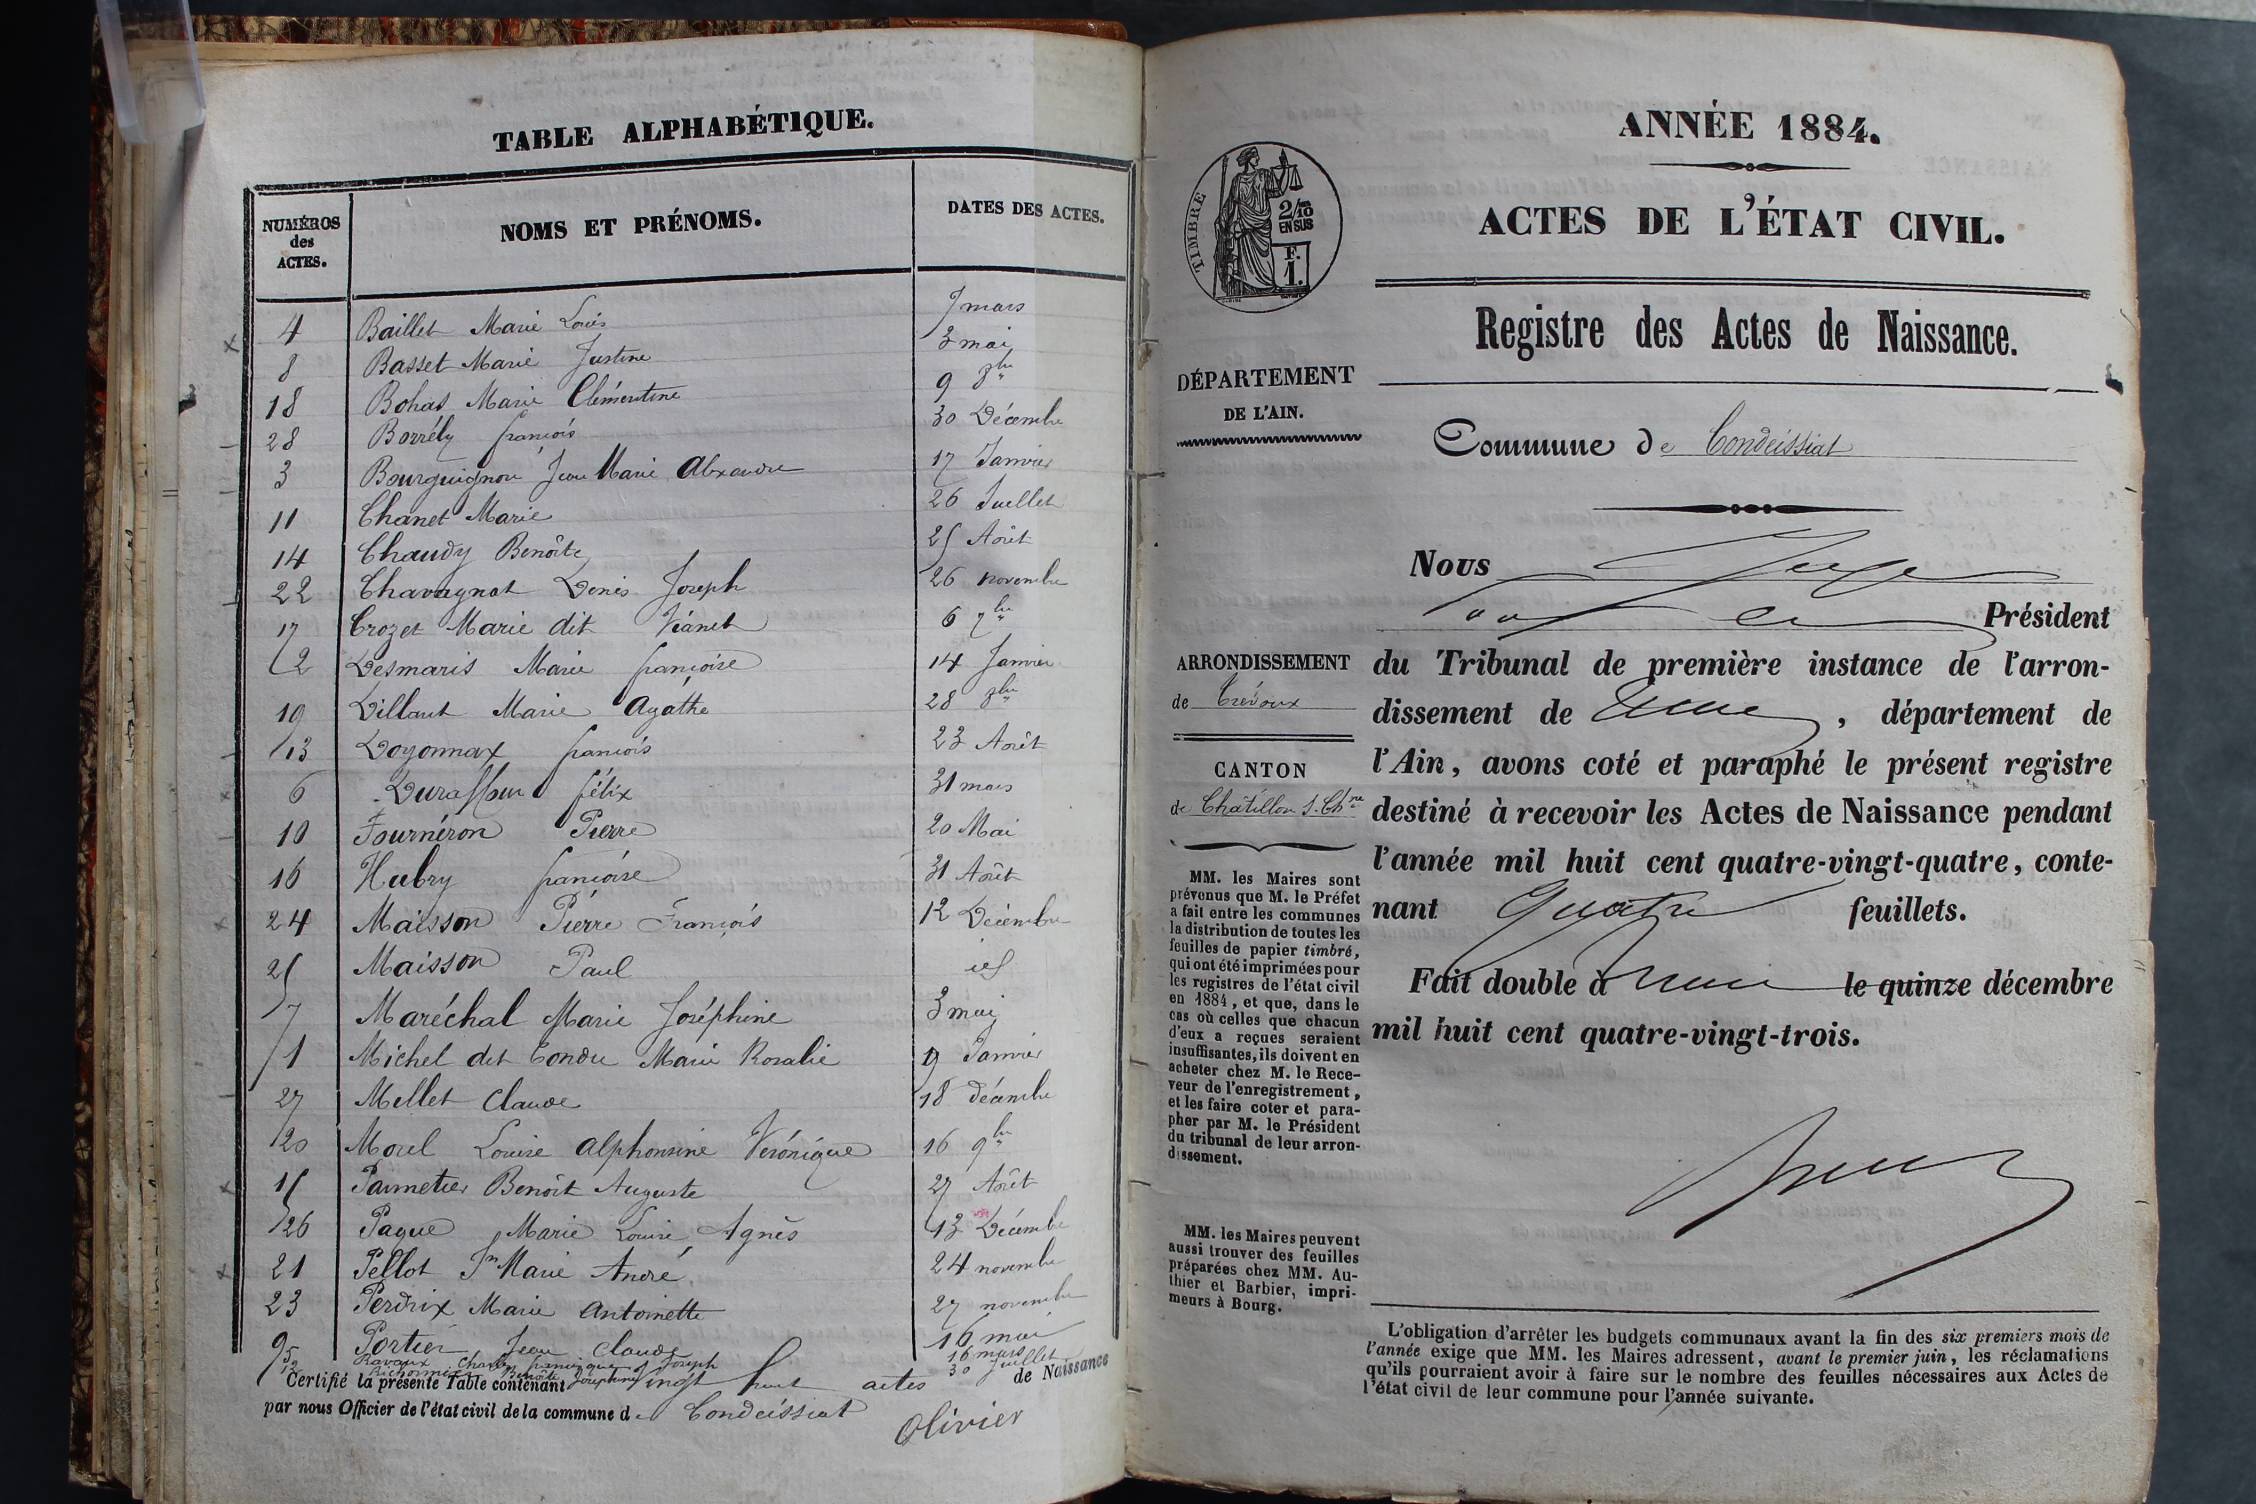 TABLE ALPHABÉTIQUE.
NUMÉROS des ACTES. NOMS ET PRÉNOMS. DATES DES ACTES.
4 Baillet Marie Louis 7 mars
8 Basset Marie Justine 3 mai
18 Bohas Marie Clémentine 9 8bre
28 Borrély françois 30 Décembre
3 Bourguignon Jean Marie Alexandre 17 Janvier
11 Chanet Marie 26 Juillet
14 Chaudy Benoîte 25 Août
22 Chavagnat Denis Joseph 26 novembre
17 Crozet Marie dit Vianet 6 7bre
2 Desmaris Marie françoise 14 Janvier
19 Dillant Marie Agathe 28 8bre
13 Doyonnax françois 23 Août
6 Durafour félix 31 mars
10 Fournéron Pierre 20 Mai
16 Hubry françoise 31 Août
24 Maisson Pierre François 12 Décembre
25 Maisson Paul
7 Maréchal Marie Joséphine 3 mai
1 Michel dit Condu Marie Rosalie 9 Janvier
27 Mellet Claude 18 décembre
20 Morel Louise Alphonsine Véronique 16 9bre
15 Parmetier Benoît Auguste 27 Août
26 Pague Marie Louise Agnès 13 Décembre
21 Pellot Jn Marie André 24 novembre
23 Perdrix Marie Antoinette 27 novembre
9 Portier Jean Claude 16 mai
5 Ravaux Charles Joseph 16 mars
12 Benoîte Joséphine 30 Juillet
Certifié la présente Table contenant Vingt huit actes de Naissance
par nous Officier de l'état civil de la commune de Condeissiat
Olivier
ANNÉE 1884.
ACTES DE L'ÉTAT CIVIL.
TIMBRE
2/10
EN SUS
F.
1.
Registre des Actes de Naissance.
DÉPARTEMENT
DE L'AIN.
Commune de Condeissiat
Nous Juge
Président
ARRONDISSEMENT
de Trévoux
CANTON
de Châtillon s. Chne
du Tribunal de première instance de l'arron-
dissement de , département de
l'Ain, avons coté et paraphé le présent registre
destiné à recevoir les Actes de Naissance pendant
l'année mil huit cent quatre-vingt-quatre, conte-
nant quatre feuillets.
Fait double à le quinze décembre
mil huit cent quatre-vingt-trois.
MM. les Maires sont
prévenus que M. le Préfet
a fait entre les communes
la distribution de toutes les
feuilles de papier timbré,
qui ont été imprimées pour
les registres de l'état civil
en 1884, et que, dans le
cas où celles que chacun
d'eux a reçues seraient
insuffisantes, ils doivent en
acheter chez M. le Rece-
veur de l'enregistrement,
et les faire coter et para-
pher par M. le Président
du tribunal de leur arron-
dissement.
MM. les Maires peuvent
aussi trouver des feuilles
préparées chez MM. Au-
thier et Barbier, impri-
meurs à Bourg.
L'obligation d'arrêter les budgets communaux avant la fin des six premiers mois de
l'année exige que MM. les Maires adressent, avant le premier juin, les réclamations
qu'ils pourraient avoir à faire sur le nombre des feuilles nécessaires aux Actes de
l'état civil de leur commune pour l'année suivante.